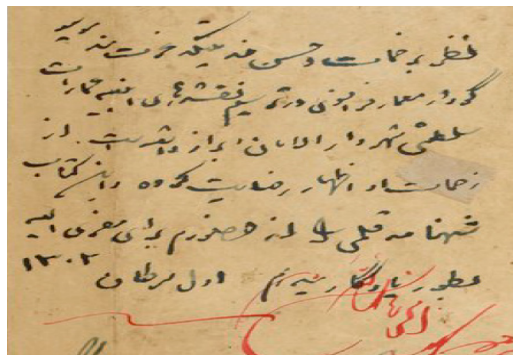 نظر به خدمات و حسن خدمتیکه عزت مند موسیو
گودار معمار فرانسوی در ترسیم نقشه های ابنیه عمارت
سلطنتی شهر دار الامان ابراز داشته است. از
زحمات او اظهار رضایت کرده و این کتاب
شهنامه قلمی را از حضورم برای مغزی الیه
بطور یادگار میدهم اول سرطان ۱۳۰۲